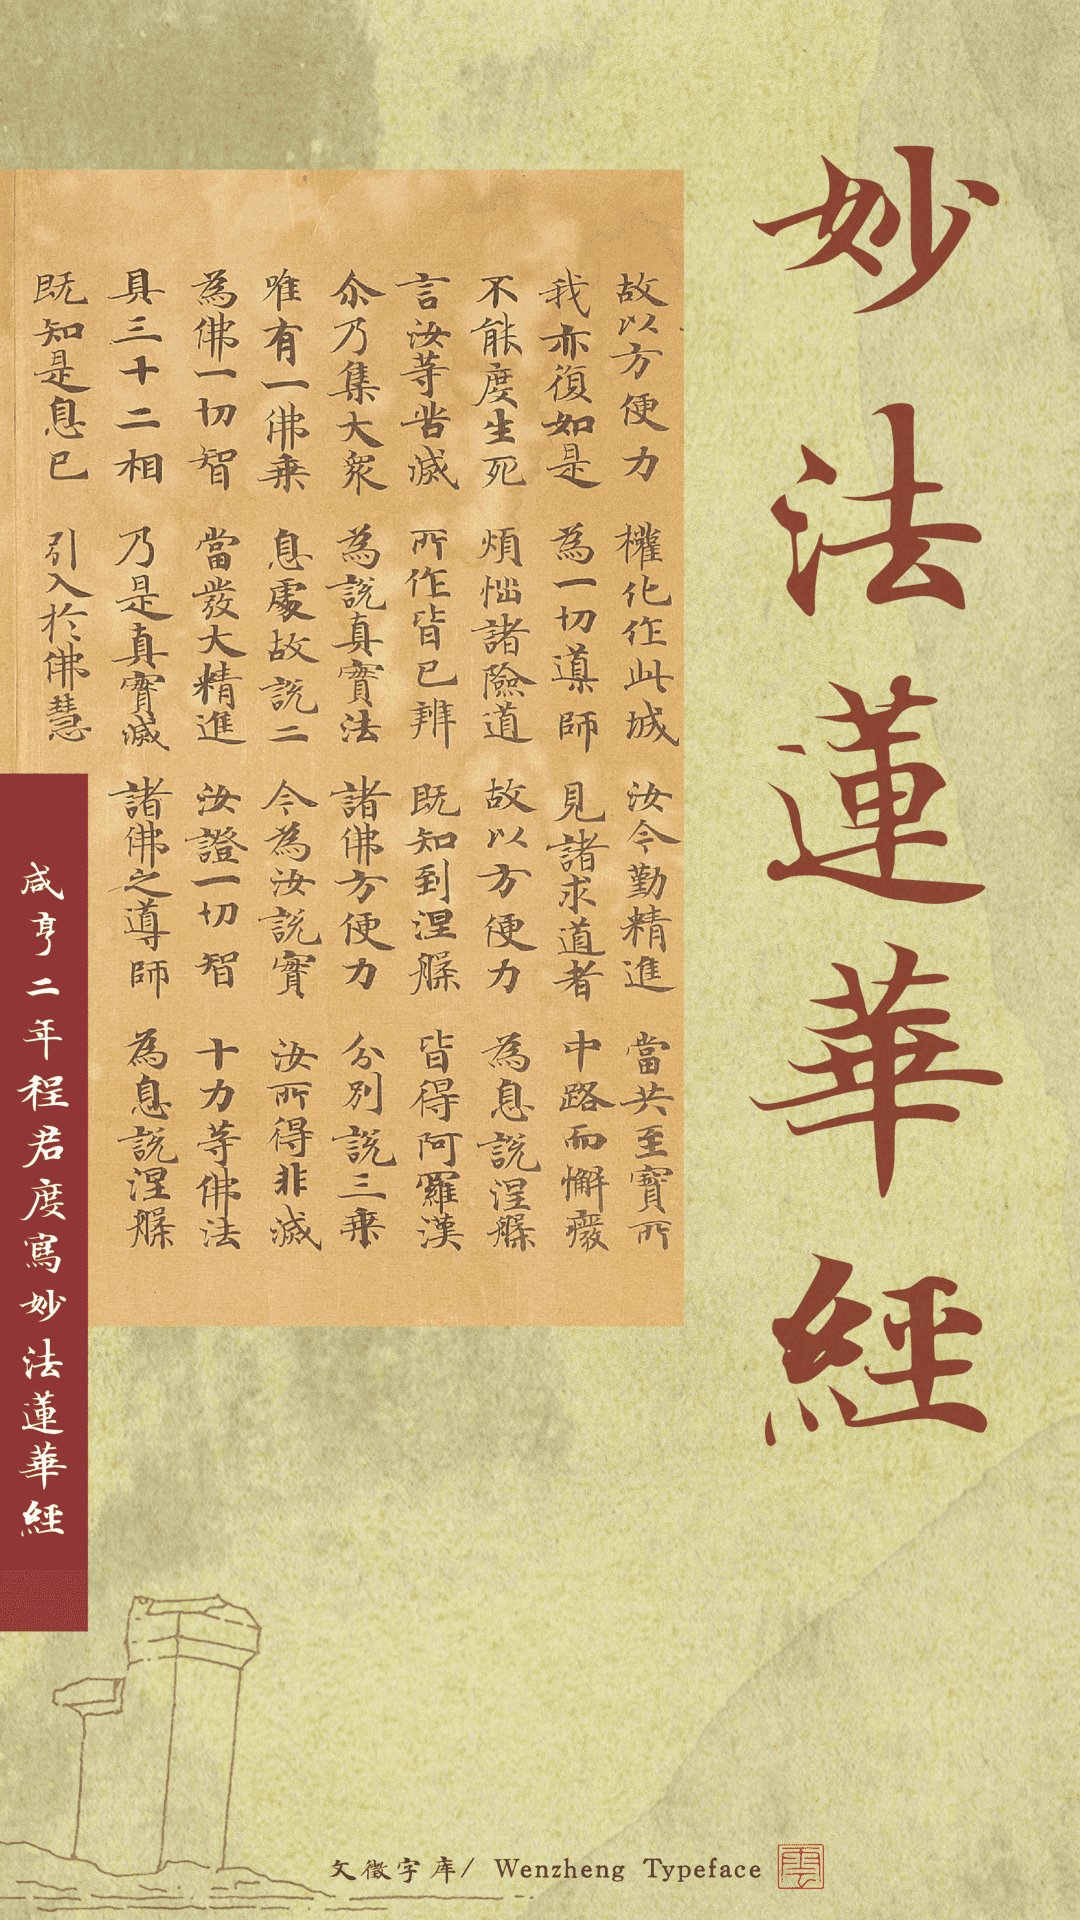 妙法蓮華經
故以方便力 權化作此城 汝今勤精進 當共至寶所
我亦復如是 為一切導師 見諸求道者 中路而懈癈
不能度生死 煩惱諸險道 故以方便力 為息說涅槃
言汝等苦滅 所作皆已辨 既知到涅槃 皆得阿羅漢
尒乃集大衆 為說真實法 諸佛方便力 分別說三乗
唯有一佛乗 息處故說二 今為汝說實 汝所得非滅
為佛一切智 當發大精進 汝證一切智 十力等佛法
具三十二相 乃是真實滅 諸佛之導師 為息說涅槃
既知是息已 引入於佛慧
咸亨二年程君度寫妙法蓮華經
文徵字库/ Wenzheng Typeface
雲